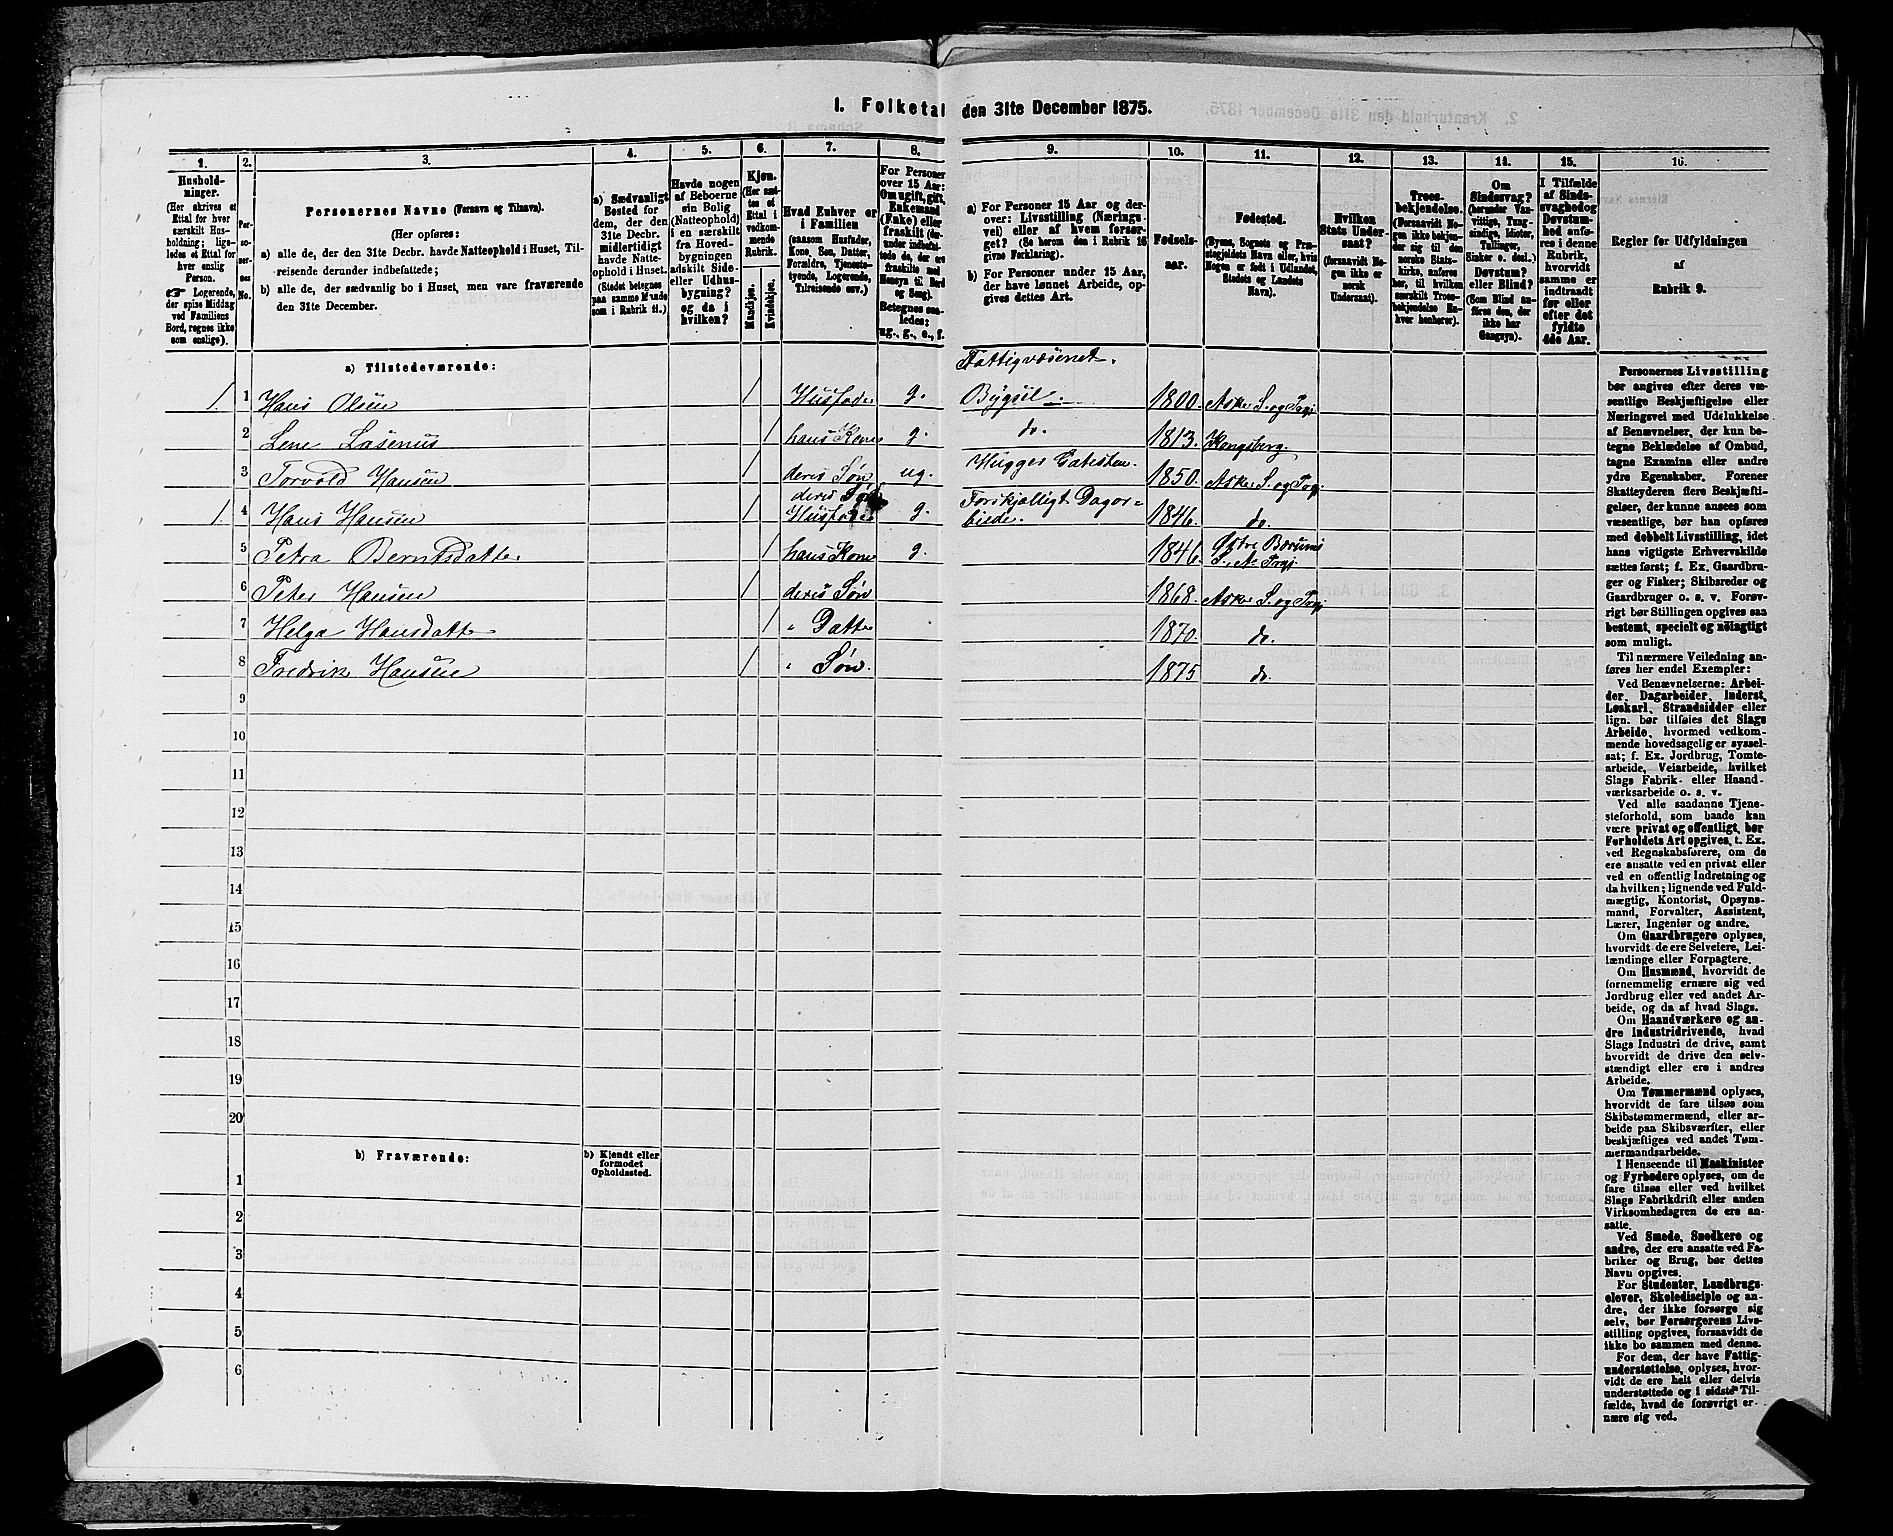 I. Folketal den 31te December 1875.
1. 2. 3. 4. 5. 6. 7. 8. 9. 10. 11. 12. 13. 14. 15. 16.
Hushold-
ninger.
(Her skrives et
Ettal for hver
særskilt Hus-
holdning; lige-
ledes et Ettal for
hver enslig
Person.
☞ Logerende,
der spise Middag
ved Familiens
Bord, regnes ikke
som enslige).
Per-
so-
ner-
nes
No.
Personernes Navne (Fornavn og Tilnavn).
(Her opføres:
a) alle de, der den 31te Decbr. havde Natteophold i Huset, Til-
reisende derunder indbefattede;
b) alle de, der sædvanlig bo i Huset, men vare fraværende
den 31te December.
a) Sædvanligt
Bosted for
dem, der den
31te Decbr.
midlertidigt
havde Natte-
ophold i Huset.
(Stedet betegnes
paa samme Maade
som i Rubrik 11.)
Havde nogen
af Beboerne
sin Bolig
(Natteophold)
i en særskilt
fra Hoved-
bygningen
adskilt Side-
eller Udhus-
bygning?
og da i
hvilken?
Kjøn.
(Her sæt-
tes et
Ettal i
vedkom-
mende
Rubrik.
Mandkjøn.
Kvindekjøn.
Hvad Enhver er
i Familien
(saasom Husfader,
Kone, Søn, Datter,
Forældre, Tjeneste-
tyende, Logerende,
Tilreisende osv.)
For Personer
over 15 Aar:
Om ugift, gift,
Enkemand
(Enke) eller
fraskilt (der-
under indbefat-
tede de, der ere
fraskilte med
Hensyn til Bord
og Seng).
Betegnes saa-
ledes:
ug., g., e., f.
a) For Personer 15 Aar og der-
over: Livsstilling (Nærings-
vei) eller af hvem forsør-
get? (Se herom den i Rubrik 16
givne Forklaring).
b) For Personer under 15 Aar,
der have lønnet Arbeide, op-
gives dettes Art.
Fødsels-
aar.
Fødested.
(Byens, Sognets og Præ-
stegjeldets Navn eller, hvis
Nogen er født i Udlandet,
Stedets og Landets
Navn).
Hvilken
Stats Under-
saat?
(forsaavidt No-
gen ikke er
norsk
Undersaat).
Troes-
bekjendelse.
(Forsaavidt No-
gen ikke bekjen-
der sig til den
norske Stats-
kirke, anføres
her, til hvilken
særskilt Troes-
bekjendelse En-
hver henhører).
Om
Sindssvag?
(herunder Van-
vittige, Tung-
sindige, Idioter,
Tullinger,
Sinker o. desl.)
Døvstum?
eller Blind?
(Som Blind an-
føres den, der
ikke har
Gangsyn).
I Tilfælde
af Sinds-
svaghed og
Døvstum-
hed anfø-
res i denne
Rubrik,
hvorvidt
samme er
indtraadt
før eller
efter det
fyldte
4de Aar.
Regler for Udfyldningen
af
Rubrik 9.
a) Tilstedeværende:
Fattigvæsenet.
1. 1 Hans Olsen 1 Husfader g. Bygsil 1800. Asker S. og Prgj.
2 Lene Lasenus 1 hans Kone g. do. 1813. Kongsberg.
3 Torvold Hansen 1 deres Søn ug. Hugger 1850. Asker S. og Prgj.
deres Søn
1. 4 Hans Hansen 1 Husfader g. Forskjelligt Dagar-
beide. 1846. do.
5 Petra Berntsdatter 1 hans Kone g. 1846. Østre Bærums
S., A. Prgj.
6 Peter Hansen 1 deres Søn 1868. Asker S. og Prgj
7 Helga Hansdatter 1 " Datter 1870. do.
8 Fredrik Hansen 1 " Søn. 1875 do.
9
10
11
12
13
14
15
16
17
18
19
20
b) Fraværende:
b) Kjendt eller
formodet
Opholdssted.
1
2
3
4
5
6
Personernes Livsstilling
bør angives efter deres væ-
sentlige Beskjæftigelse eller
Næringsvei med Udelukkelse
af Benævnelser, der kun be-
tegne Beklædelse af Ombud,
tagne Examina eller andre
ydre Egenskaber. Forener
Skatteyderen flere Beskjæfti-
gelser, der kunne ansees som
væsentlige, bør han opføres
med dobbelt Livsstilling, idet
hans vigtigste Erhvervskilde
sættes først; f. Ex. Gaardbru-
ger og Fisker; Skibsreder og
Gaardbruger o. s. v. Forøv-
rigt bør Stillingen opgives saa
bestemt, specielt og nøiagtigt
som muligt.
Til nærmere Veiledning an-
føres her endel Exempler:
Ved Benævnelserne: Arbei-
der, Dagarbeider, Inderst,
Løskarl, Strandsidder eller
lign. bør tilføies det Slags
Arbeide, hvormed vedkom-
mende hovedsagelig er syssel-
sat; f. Ex. Jordbrug, Tomte-
arbeide, Veiarbeide, hvilket
Slags Fabrik- eller Haand-
værksarbeide o. s. v.
Ved alle saadanne Tjene-
steforhold, som baade kan
være privat og offentligt, bør
Forholdets Art opgives, t. Ex.
ved Regnskabsførere, om de
ere ansatte ved en privat eller
ved en offentlig Indretning og
da hvilken; lignende ved Fuld-
mægtig, Kontorist, Opsyns-
mand, Forvalter, Assistent,
Lærer, Ingeniør og andre.
Om Gaardbrugere oplyses,
hvorvidt de ere Selveiere, Lei-
lændinge eller Forpagtere.
Om Husmænd, hvorvidt de
fornemmelig ernære sig ved
Jordbrug eller ved andet Ar-
beide, og da af hvad Slags.
Om Haandværkere og an-
dre Industridrivende, hvad
Slags Industri de drive, samt
hvorvidt de drive den selv-
stændigt eller ere i andres
Arbeide.
Om Tømmermænd oplyses,
hvorvidt de fare tilsøs som
Skibstømmermænd, eller ar-
beide paa Skibsværfter, eller
beskjæftiges ved andet Tøm-
mermandsarbeide.
I Henseende til Maskinister
og Fyrbødere oplyses, om de
fare tilsøs eller ved hvilket
Slags Fabrikdrift eller anden
Virksomhedsgren de ere an-
satte.
Ved Smede, Snedkere og
andre, der ere ansatte ved Fa-
briker og Brug, bør dettes
Navn opgives.
For Studenter, Landbrugs-
elever, Skoledisciple og an-
dre, der ikke forsørge sig
selv, bør Forsørgerens Livs-
stilling opgives, forsaavidt de
ikke bo sammen med denne.
For dem, der have Fattig-
understøttelse, oplyses, hvor-
vidt de ere helt eller delvis
understøttede og i sidste Til-
fælde, hvad de forøvrigt er-
nære sig ved.